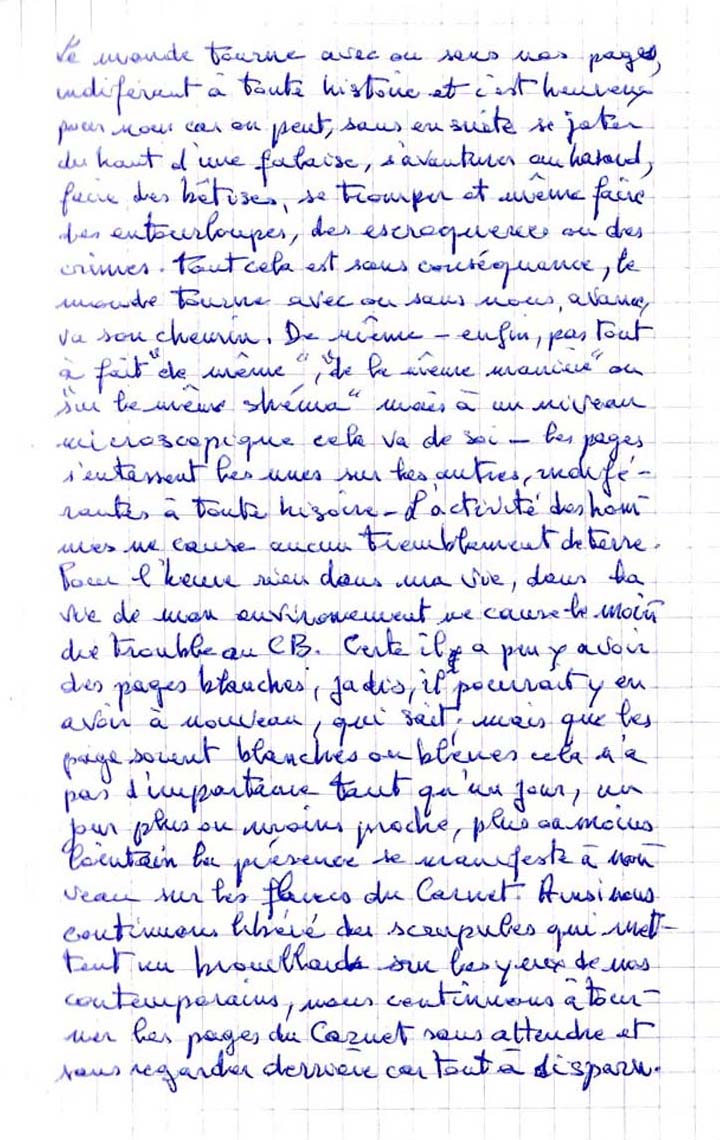 Le monde tourne avec ou sans nos pages,
indiférent à toute histoire et c'est heureux
pour nous car on peut, sans ensuite se jeter
du haut d'une falaise, s'aventurer au hasard,
faire des bêtises, se tromper et même faire
des entourloupes, des escroqueries ou des
crimes. Tout cela est sans conséquance, le
monde tourne avec ou sans nous, avance,
va son chemin. De même – enfin, pas tout
à fait "de même", "de la même manière" ou
"sur le même shéma" mais à un niveau
microscopique cela va de soi – les pages
s'entassent les unes sur les autres, indifé-
rantes à toute hisoire – L'activité des hom
mes ne cause aucun tremblement de terre.
Pour l'heure rien dans ma vie, dans la
vie de mon environement ne cause le moin
dre trouble au CB. Certe il y a peu y avoir
des pages blanches, jadis, il pourrait y en
avoir à nouveau, qui sait; mais que les
page soient blanches ou bleues cela n'a
pas d'importance tant qu'un jour, un
jour plus ou moins proche, plus ou moins
lointain la présence se manifeste à nou
veau sur les du Carnet. Ainsi nous
continuons libéré des scrupules qui met-
tent un brouillard sur les yeux de nos
contemporains, nous continuons à tour-
ner les pages du Carnet sans attendre et
sans regarder derrière car tout à disparu.